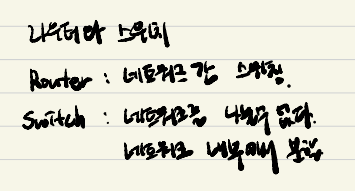 라우터와 스위치
Router : 네트워크 간 스위칭.
Switch : 네트워크를 나눌수 없다.
네트워크 내부에서 분할